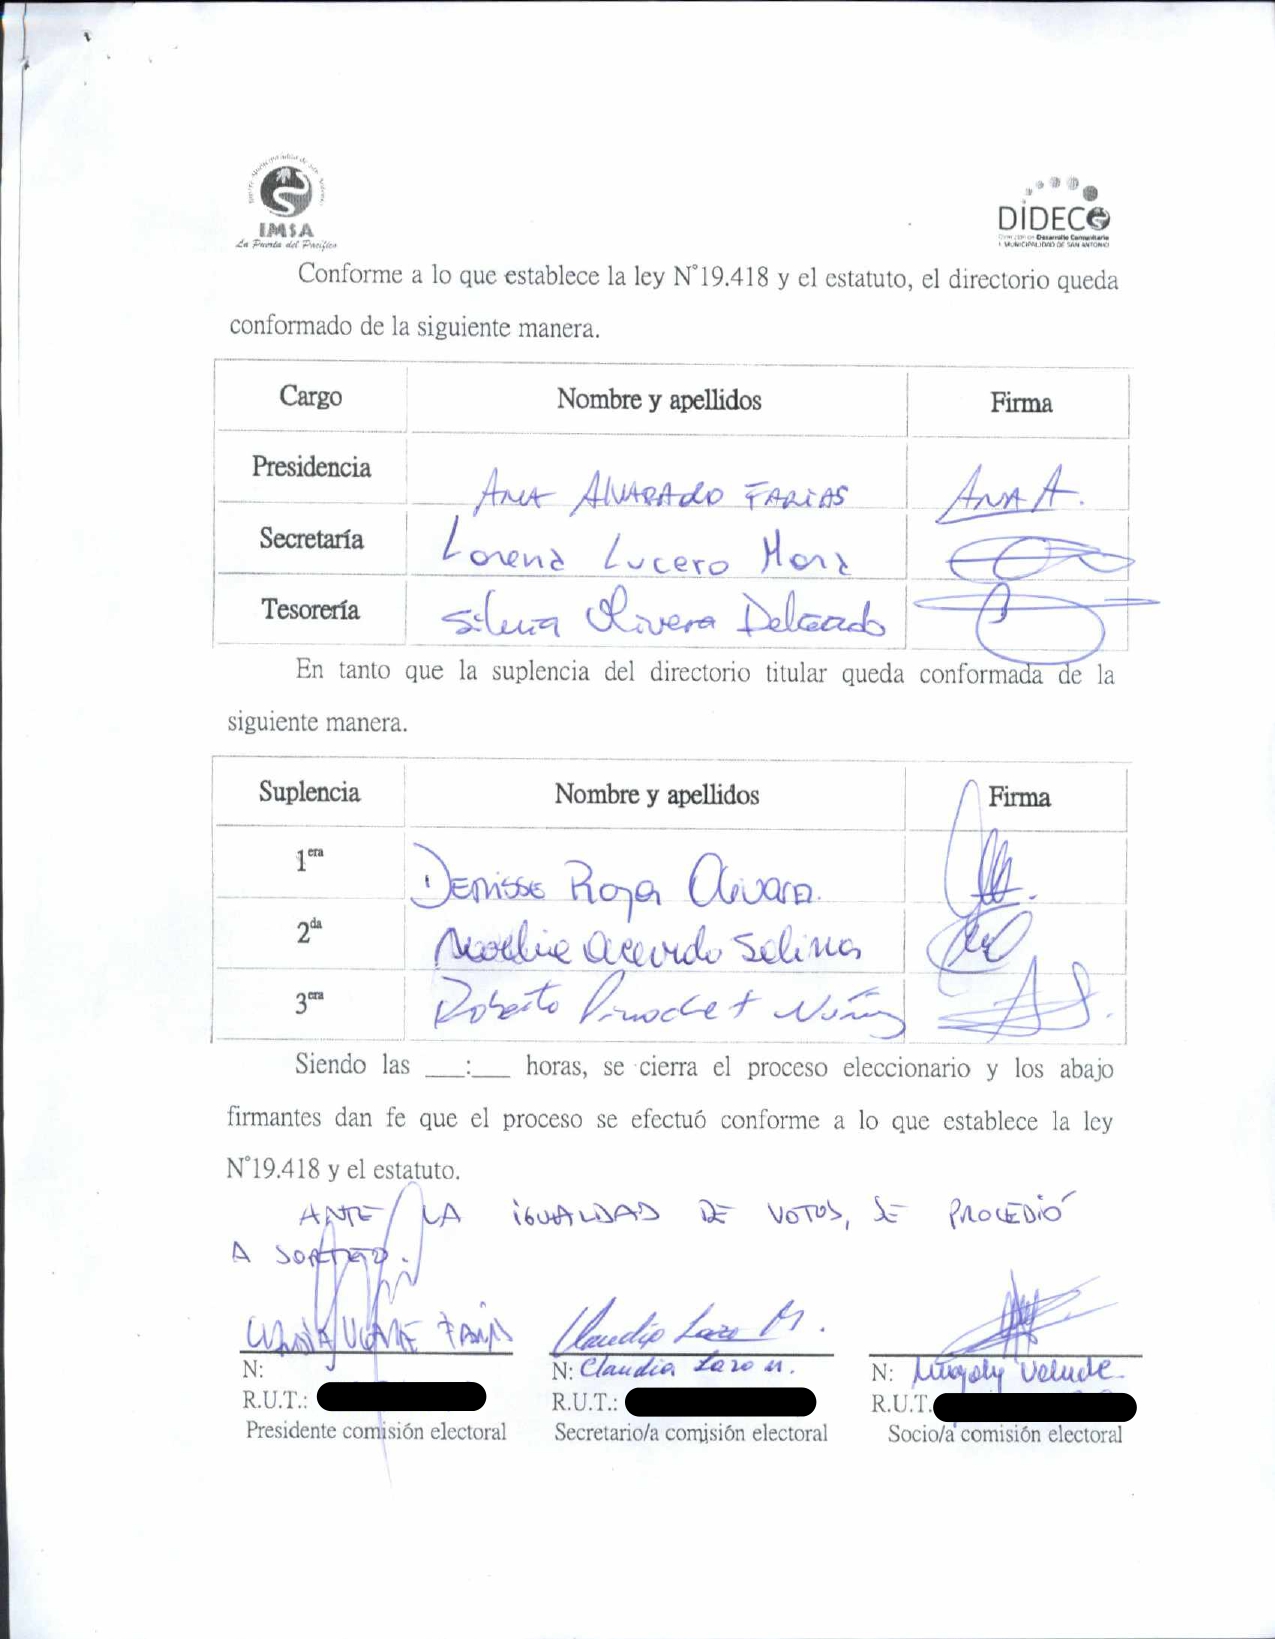 IMSA
La Puerta del Pacífico
DIDECO
Desarrollo Comunitario
I. MUNICIPALIDAD DE SAN ANTONIO
Conforme a lo que establece la ley N°19.418 y el estatuto, el directorio queda
conformado de la siguiente manera.
Cargo Nombre y apellidos Firma
Presidencia ANA ALVARADO FARIAS ANA A.
Secretaría Lorena Lucero Mora
Tesorería Silvia Olivera Delgado
En tanto que la suplencia del directorio titular queda conformada de la
siguiente manera.
Suplencia Nombre y apellidos Firma
1era Denisse Rojas
2da Acevedo Salinas
3era Roberto Pinochet Núñez
Siendo las ___:___ horas, se cierra el proceso eleccionario y los abajo
firmantes dan fe que el proceso se efectuó conforme a lo que establece la ley
N°19.418 y el estatuto.
ANTE LA IGUALDAD DE VOTOS, SE PROCEDIÓ
A SORTEO.
Claudio Lazo M.
N: N: Claudio Lazo M. N:
R.U.T.: R.U.T.: R.U.T.
Presidente comisión electoral Secretario/a comisión electoral Socio/a comisión electoral